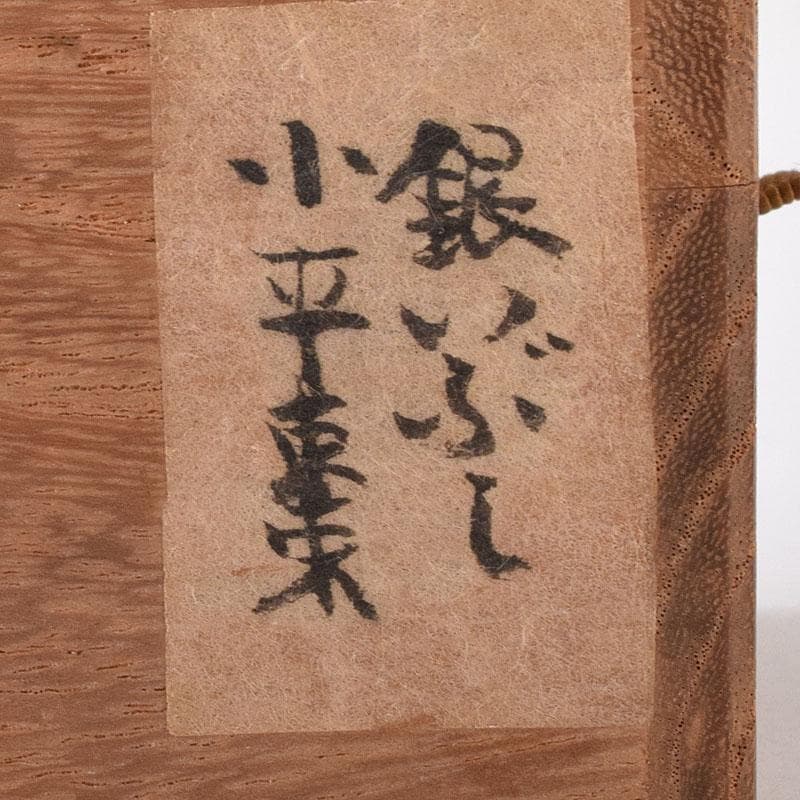 銀いぶし
小平棗